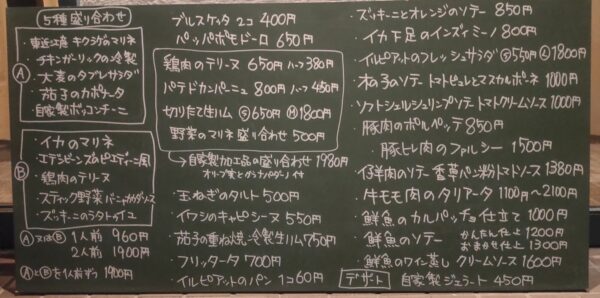 5種盛り合わせ
A
・東近江産キクラゲのマリネ
・チキンガーリックの冷製
・大麦のタブレサラダ
・茄子のカポナータ
・自家製ボッコンチーニ
B
・イカのマリネ
・鶏肉のテリーヌ
・スティック野菜 バーニャカウダソース
・ズッキーニのラタトゥイユ
A又はB 1人前 960円
2人前 1900円
AとBを1人前ずつ 1900円
ブルスケッタ 2コ 400円
パッパポモドーロ 650円
鶏肉のテリーヌ 650円 ハーフ380円
パテドカンパーニュ 800円 ハーフ450円
切りたて生ハム S650円 M1800円
野菜のマリネ盛り合わせ 500円
→自家製加工品の盛り合わせ 1980円
・玉ねぎのタルト 500円
・イワシのキャビシーネ 550円
・茄子の重ね焼 冷製生ハム 750円
・フリッタータ 700円
・イルピアットのパン 1コ60円
・ズッキーニとオレンジのソテー 850円
・イカ下足のインズィミーノ 800円
・イルピアットのフレッシュサラダ S550円 L1800円
・木の子のソテー トマトピュレとマスカルポーネ 1000円
・ソフトシェルシュリンプソテー トマトクリームソース 1000円
・豚肉のポルペッテ 850円
・豚ヒレ肉のファルシー 1500円
・仔羊肉のソテー 香草パン粉トマトソース 1380円
・牛モモ肉のタリアータ 1100円〜2100円
・鮮魚のカルパッチョ仕立て 1000円
・鮮魚のソテー かんたん仕上 1200円
おまかせ仕上 1300円
・鮮魚のワイン蒸し クリームソース 1600円
デザート 自家製ジェラート 450円